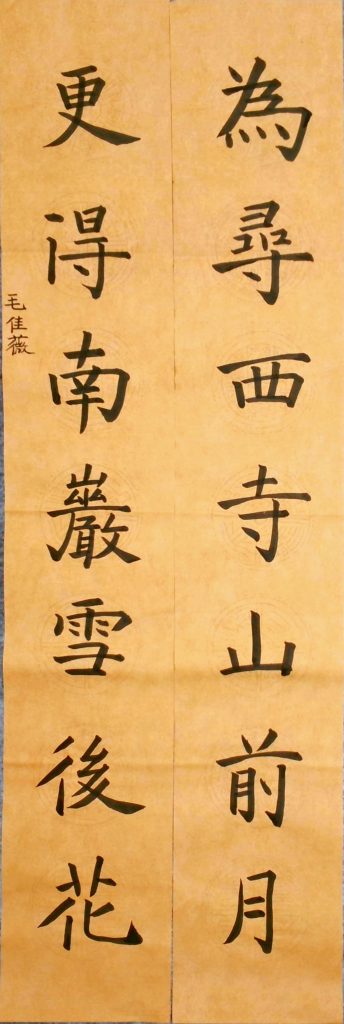 為尋西寺山前月
更得南巖雪後花
毛佳薇